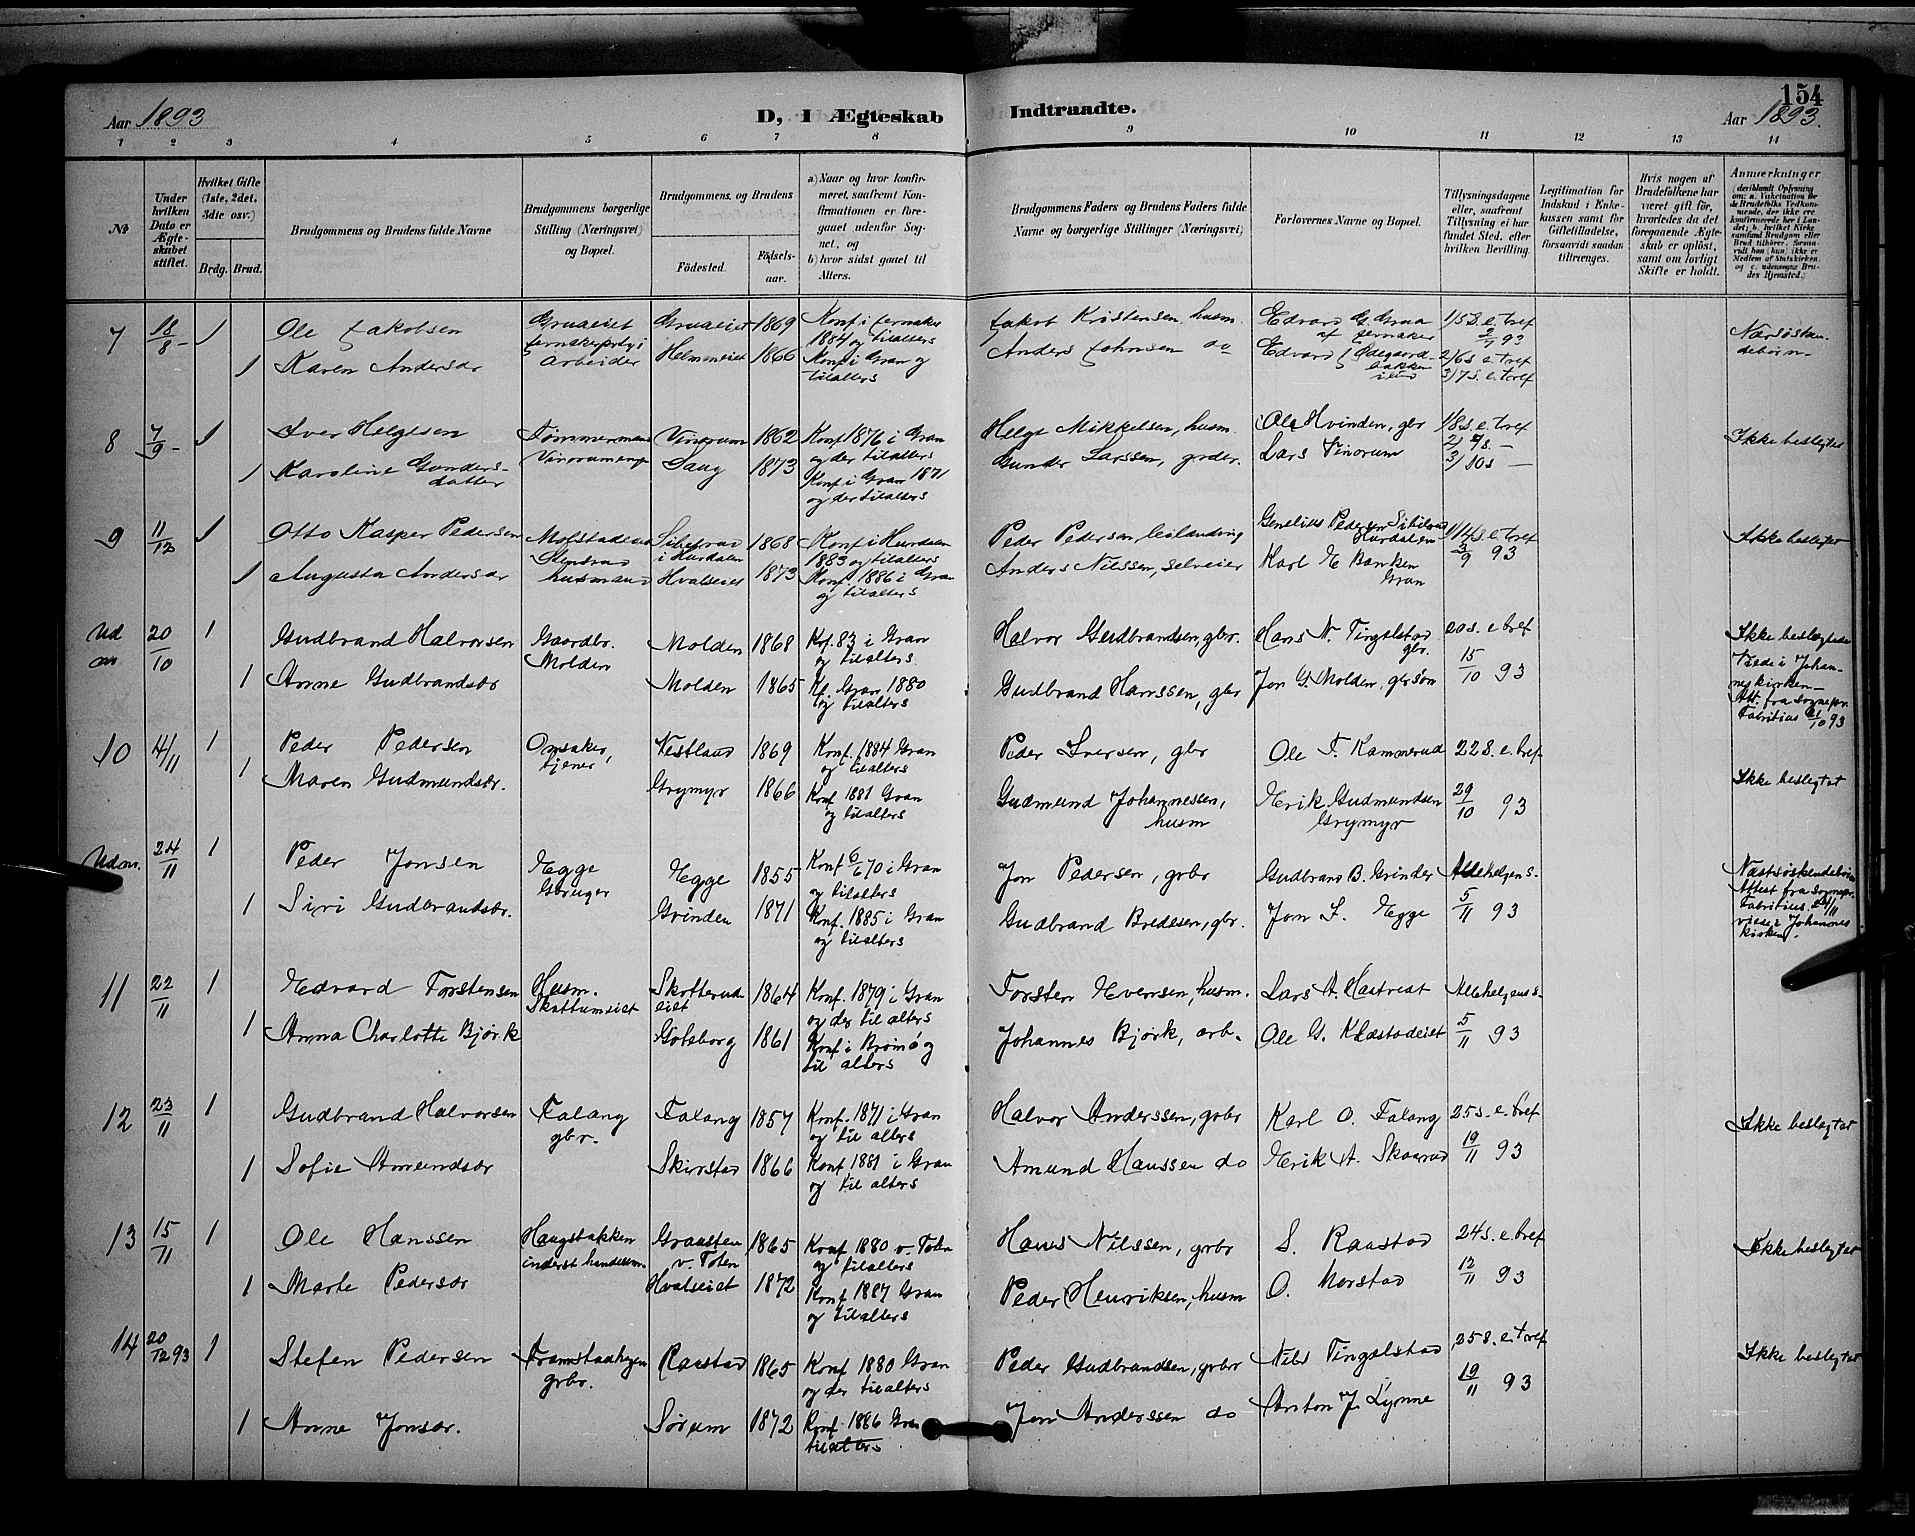 Aar 1893
D, I Ægteskab Indtraadte.
154
Aar 1893.
1 2 3 4 5 6 7 8 9 10 11 12 13 14
No
Under hvilken Dato er Ægteskabet stiftet.
Hvilket Gifte (1ste, 2det, 3die osv.)
Brdg. Brud.
Brudgommens og Brudens fulde Navne
Brudgommens borgerlige Stilling (Næringsvei) og Bopæl.
Brudgommens og Brudens
Födested.
Födselsaar.
a) Naar og hvor konfirmeret, saafremt Konfirmationen er foregaaet udenfor Sognet, og
b) hvor sidst gaaet til Alters.
Brudgommens Faders og Brudens Faders fulde Navne og borgerlige Stillinger (Næringsvei)
Forlovernes Navne og Bopæl.
Tillysningsdagene eller, saafremt Tillysning ei har fundet Sted, efter hvilken Bevilling.
Legitimation for Indskud i Enkekassen samt for Giftetilladelse, forsaavidt saadan tiltrænges.
Hvis nogen af Brudefolkene har været gift för, hvorledes da det foregaaende Ægteskab er oplöst, samt om lovligt Skifte er holdt.
Anmærkninger
7 18/8 1 Ole Jakobsen Gruaeiet Jernskerpety i Arbeider Gruaeiet 1869 Konf i Jevnaker 1884 og tilalters Jakob Kristensen husm. Edvard G. Grua af Jevnaker 1/5 s. e. tref 2/7 93 Næsøskendebørn
1 Karen Andersdr Helmeneiet 1866 Konf i Gran og tilalters Anders Johnsen do Edvard J Ødegaardbakken 2/6 s. e. tref 3/7 s. e. tref
8 7/9 1 Iver Helgesen Tømmermand Vinorumeng Vinorum 1862 Konf 1876 i Gran og der tilalters Helge Mikkelsen, husm. Ole Hvinden, gbr 1/8 s. e. tref Ikke beslegtet
1 Karoline Gundersdatter Saug 1873 Konf i Gran 1871 og der tilalters Gunder Larssen, grdbr. Lars Vinorum 2/9 s. 3/10 s
9 11/12 1 Otto Kasper Pedersen husmand i Hurdalen 1868 Konf i Hurdalen 1883 og tilalters Peder Pedersen, leilending Genelius Pedersen Hurdalen 1/14 s. e. tref 3/9 93 Ikke beslegtet
1 Augusta Andersdr Hvalseiet 1873 Konf. 1886 i Gran og tilalters Anders Nilssen, selveier Karl E Banken Gran
Ud an 20/10 1 Gudbrand Halvorsen Gaardbr. Molden Molden 1868 Kf. 83 i Gran og tilalters. Halvor Gudbrandsen, gbr. Hans N. Tingelstad gbr. 20 s. e. tref 15/10 93 Ikke beslegtede Viede i Johanneskirken Att. fra Sognepr. Fabritius 21/10 93
1 Anne Gudbrandsdr Molden 1865 Kf. Gran 1880 og tilalters Gudbrand Hanssen, gbr Jon G. Molden, gbrsøn
10 4/11 1 Peder Pedersen Onsaker, tjener Vestland 1869 Konf. 1884 Gran og tilalters Peder Iversen, gbr Ole T. Kammerud 22 s. e. tref. Ikke beslegtet
1 Maren Gudmundsdr. Grymyr 1866 Konf 1881 Gran og tilalters Gudmund Johannessen, husm Herik Gudmundsen Grymyr 29/10 93
Udm. 24/11 1 Peder Jonsen Hegge Gbruger Hegge 1855 Konf 6/6 70 i Gran og tilalters Jon Pedersen, grbr Gudbrand B. Grinder Allehelgens. Næstsøskendebørn Attest fra Sognepr. Fabritius 24/11 viede i Johanneskirken.
1 Siri Gudbrandsdr. Grinden 1871 Konf. 1885 i Gran og tilalters Gudbrand Bredesen, gbr. Jon L. Hegge 5/11 93
11 22/11 1 Edvard Torstensen Husm. Skattumeiet Skotterudeiet 1864 Konf. 1879 i Gran og der til alters Torsten Evensen, husm. Lars A. Hastveit Allehelgens s.
1 Anna Charlotte Bjørk Göteborg 1861 Konf i Brømö og til alters Johannes Bjørk, arb. Ole G. Klæstadeiet 5/11 93
12 23/11 1 Gudbrand Halvorsen Falang gbr. Falang 1857 Konf. 1871 i Gran og til alters Halvor Anderssen, grbr Karl O. Falang 25 s. e. tref Ikke beslegtet
1 Sofie Amundsdr Skirstad 1866 Konf 1881 i Gran og til alters Amund Hanssen do Herik A. Skaarud 19/11 93
13 15/11 1 Ole Hanssen Haugsbakken inderst handelsm. Graasten v. Toten 1865 Konf 1880 v. Toten og tilalters Hans Nilssen, grbr S. Raastad 24 s. e. tref Ikke beslegtet
1 Marte Pedersdr Hvalseiet 1872 Konf 1887 Gran og tilalters Peder Henriksen, husm O. Morstad 12/11 93
14 20/12 93 1 Stefen Pedersen Framstadhagen grbr. Raastad 1865 Konf 1880 Gran og der tilalters Peder Gudbrandsen, grbr Nils Tingelstad 25 s. e. tref Ikke beslegtet
1 Anne Jonsdr. Sørum 1872 Konf 1886 Gran tilalters Jon Anderssen do Anton J. Lynne 19/11 93